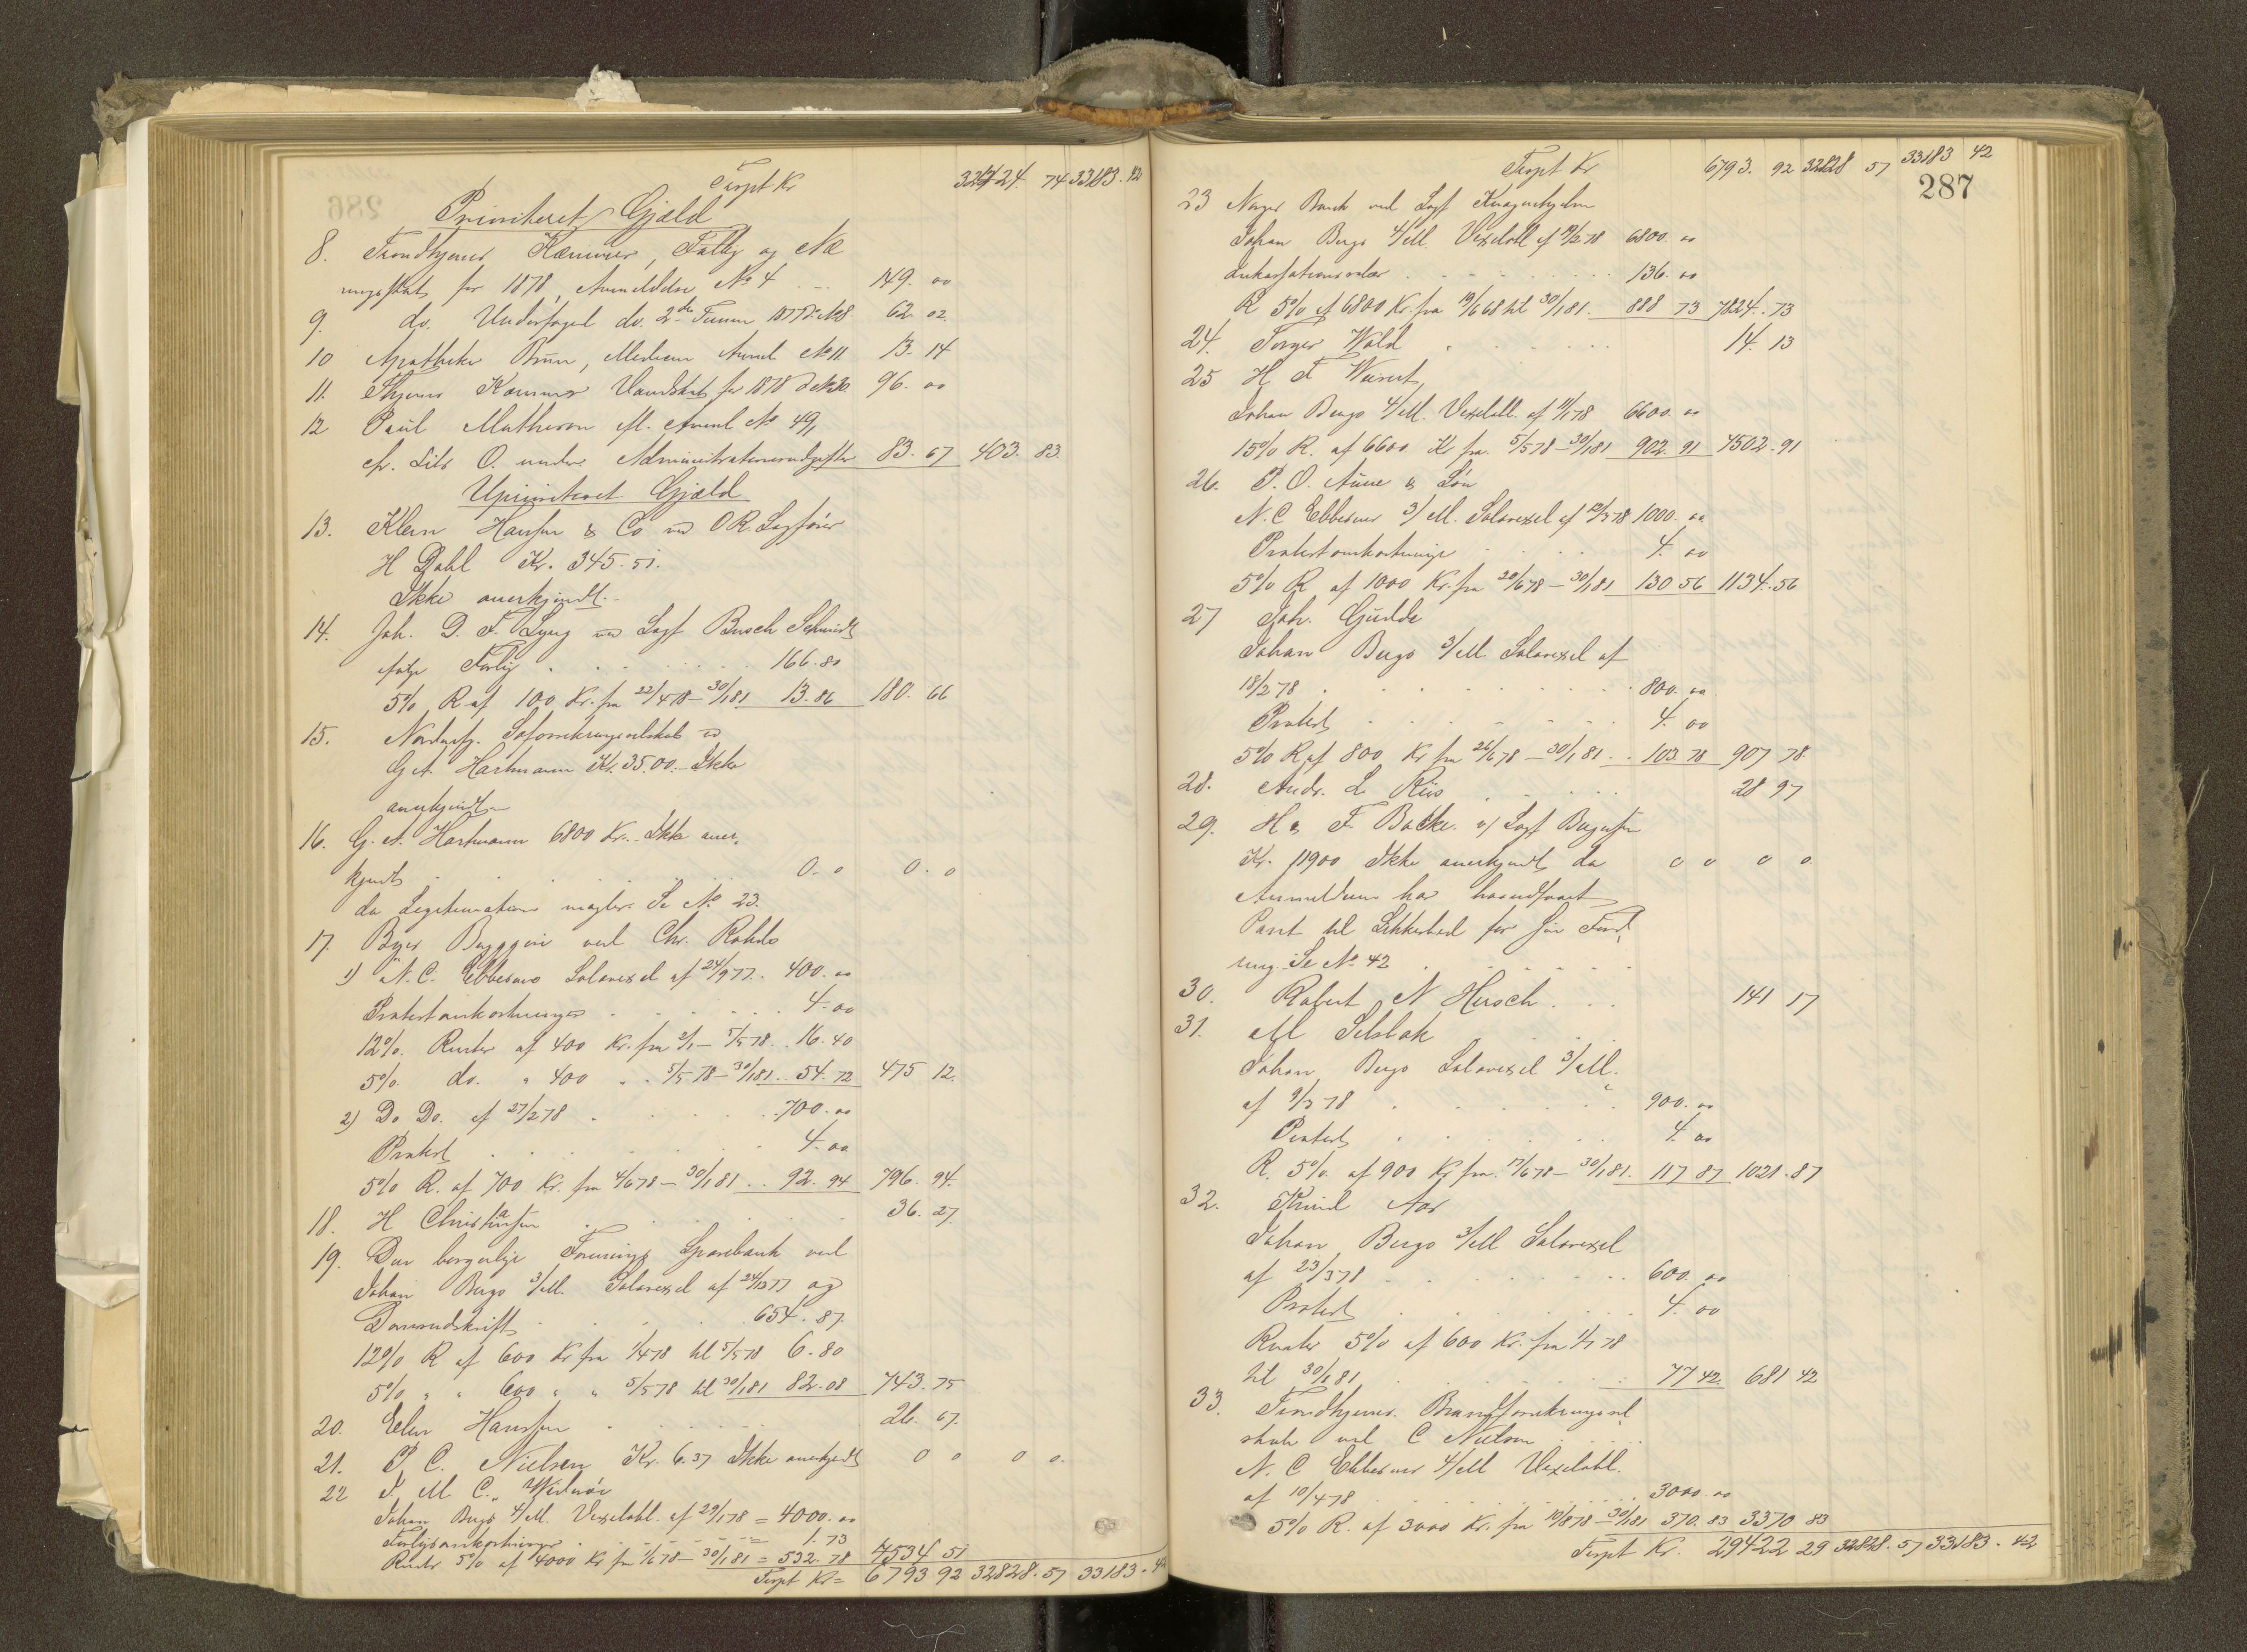 Trspt Kr 32424. 74 33183. 42
Prioriteret Gjæld
8. Trondhjems Kæmner, Fattig og Næ
ringsskat for 1878, Anmeldelse No 4 149. 00
9. do. Underfoged do. 2den Termin 1877 do No 8. 62. 02.
10 Apotheker Bruun, Medicin Anmel No 11 13. 14
11. Thjems Kæmner Vandskat for 1878 do No 30. 96. 00
12 Paul Matheson efl. Anmel No 49,
cfr. Litr O. under Administrationsudgifter 83. 67 403. 83.
Uprioriteret Gjæld
13. Klem Hansen & Co ved O.R. Sagfører
H Dahl Kr. 345. 51.
Ikke anerkjendt.
14. Joh. D. F. Lyng ved Sagf Busch Schmidt
ifølge Forlig 166. 80
5% R af 100 Kr. fra 22/4 78 - 30/1 81 13. 86 180. 66
15. Nordenfj. Søforsikringsselskab ved
G. A. Hartmann Kr. 3500. - Ikke
anerkjendt
16. G. A. Hartmann 6800 Kr. Ikke aner-
kjendt 0. 0 0. 0
da Legitimation mangler. Se No 23.
17. Byes Byggeri ved Chr. Rohde
1) N. C. Ebbesens Solavexel af 24/9 77. 400. 00
Protestomkostninger 4. 00
12% Renter af 400 Kr. fra 2/1 - 5/5 78. 16. 40
5% do. " 400 " . 5/5 78 - 30/1 81. 54. 72 475 12.
2) Do Do. af 27/2 78 700. 00
Protest 4. 00
5% R. af 700 Kr. fra 4/6 78 - 30/1 81 92. 94 796. 94.
18. H Christiansen 36. 27
19. Den borgerlige Forenings Sparebank ved
Johan Bugs 3/M. Solavexel af 24/12 77 og
Domsudskrift 654. 87.
12% R af 600 Kr fra 1/4 78 til 5/5 78 6. 80
5% " " 600 " " 5/5 78 til 30/1 81 82. 08 743. 75
20. Elen Hansen 26. 67.
21. P. C. Nielsen Kr. 6. 37 Ikke anerkjendt 0 0 0 0.
22 M. C.
Johan Bugs 4/M. Vexelobl. af 29/1 78 = 4000. 00
Forligsomkostninger = 1. 73
Renter 5% af 4000 Kr fra 1/6 78 - 30/1 81 = 532. 78 4534 51
Trspt Kr = 6793 92 32828. 57 33183. 42
287
Trspt Kr 6793. 92 32828 57 33183 42
23 Norges Bank ved Sagf Knagenhjelm
Johan Bugs 4/M. Vexelobl af 19/2 78 6800. 00
Inkassationssalær 136. 00
R 5% af 6800 Kr. fra 19/6 68 til 30/1 81. 888 73 7824. 73
24. Torger Wold 14. 13
25 H F Weinert,
Johan Bugs 4/M. Vexelobl. af 11/1 78 6600. 00
15% R. af 6600 Kr fra 5/5 78 - 30/1 81 902. 91 7502. 91
26. P. O. Aune & Søn
N. C Ebbesens 3/M. Solavexel af 18/3 78 1000. 00
Protestomkostninger 4. 00
5% R af 1000 Kr. fra 20/6 78 - 30/1 81 130 56 1134. 56
27 Joh. Gudde
Johan Bugs 3/M. Solavexel af
18/2 78 800. 00
Protest 4. 00
5% R af 800 Kr fra 26/6 78 - 30/1 81 103. 78 907 78.
28. Andr. L. Riis 28 97
29. H & F. Bache. v/ Sagf
Kr. 11900 Ikke anerkjendt da 0 0 0 0.
Anmelderen har haandfaaet
Pant til Sikkerhed for sin Ford-
ring. Se No 42
30. Robert N Hirsch 141 17
31. M Selbak
Johan Bugs Solavexel 3/M.
af 9/3 78 900. 00
Protest 4. 00
R. 5% af 900 Kr fra 17/6 78 - 30/1 81. 117 87 1021. 87
32. Knud Aas
Johan Bugs 3/M Solavexel
af 23/3 78 600. 00
Protest 4. 00
Renter 5% af 600 Kr. fra 1/7 78
til 30/1 81 77 42. 681 42
33. Trondhjems Brandforsikringssel
skab ved C Nielsen
N. C Ebbesens 4/M Vexelobl.
af 10/4 78 3000. 00
5% R. af 3000 Kr. fra 10/8 78 - 30/1 81 370. 83 3370 83
Trspt Kr. 29422 29 32828. 57 33183. 42